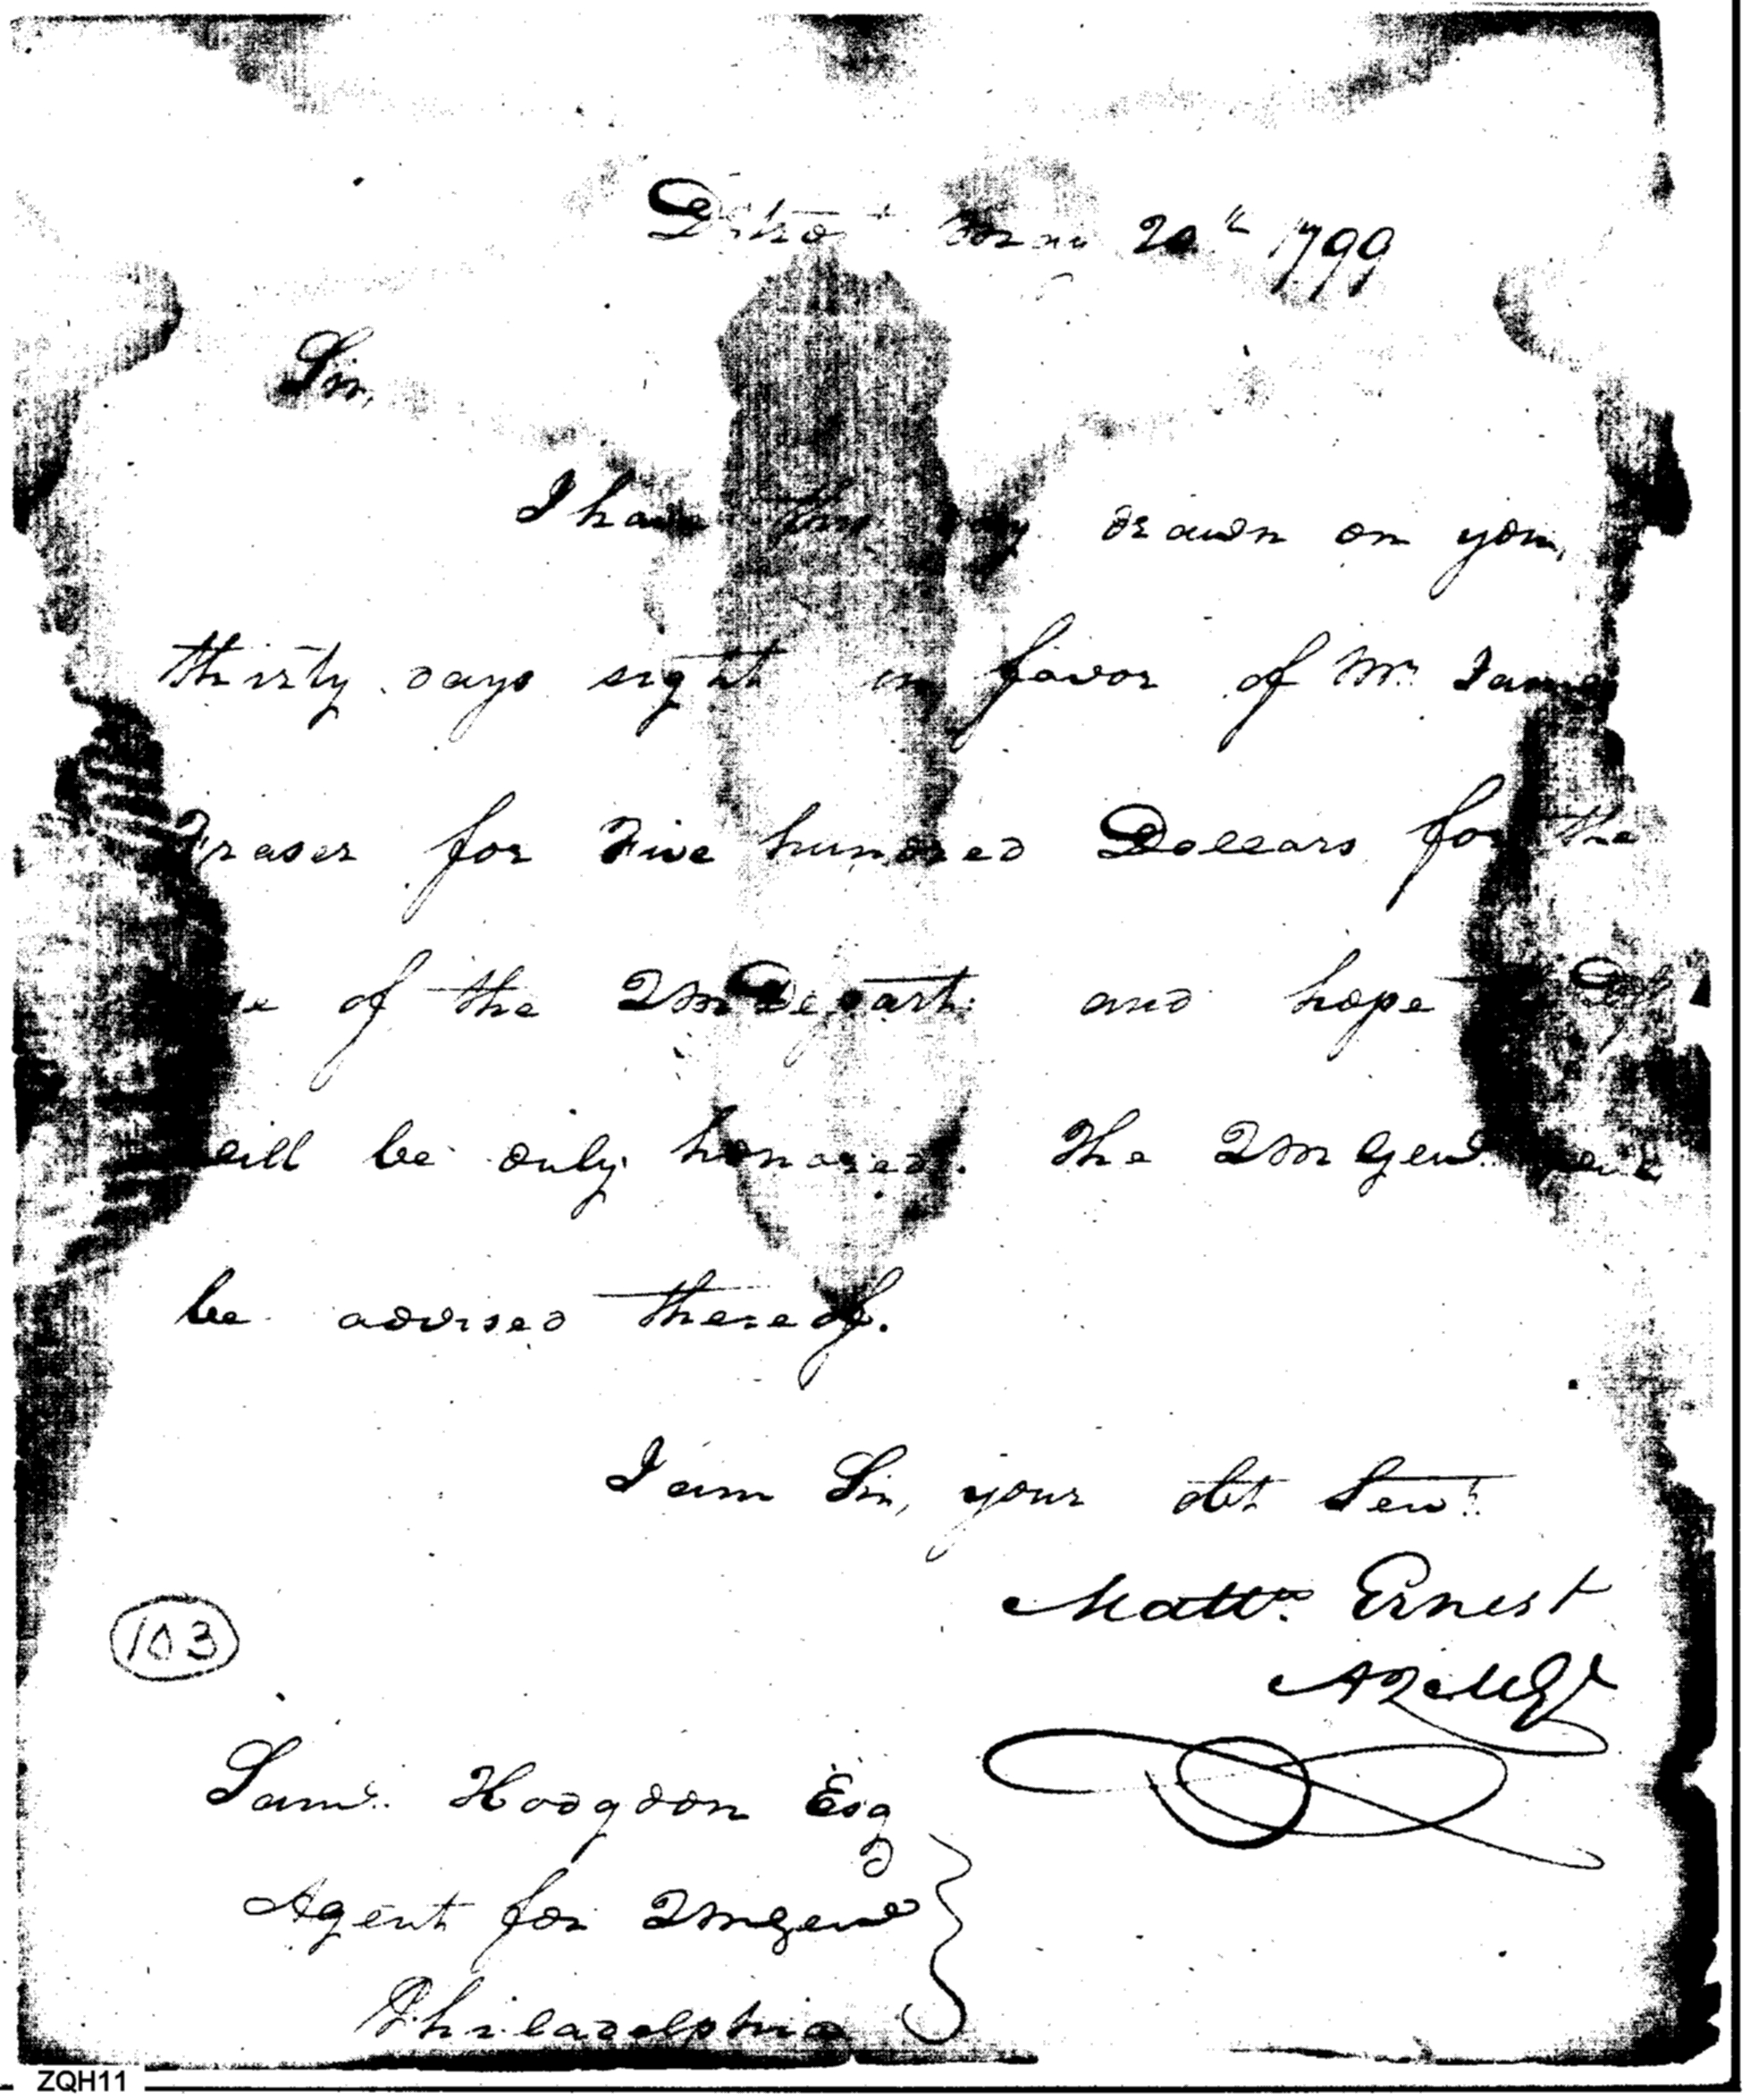 Detroit 20th 1799
Sir,
I have this day drawn on you,
thirty days sight in favor of Mr. James
Fraser for Five hundred Dollars for the
use of the QMDepart: and hope
will be duly honored. The QMGenl.
be advised thereof.
I am Sir, your obt Servt.
Matths. Ernest
AQMGl
103
Saml. Hodgdon Esq
Agent for QMGenl
Philadelphia
ZQH11